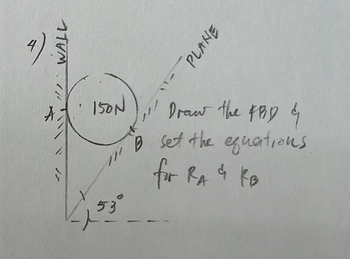 4)
WALL
PLANE
A
150N
B
Draw the FBD &
set the equations
for RA & RB
53°